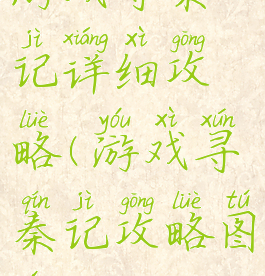 jì xiáng xì gōng
记详细攻
lüè yóu xì xún
略(游戏寻
qín jì gōng lüè tú
秦记攻略图